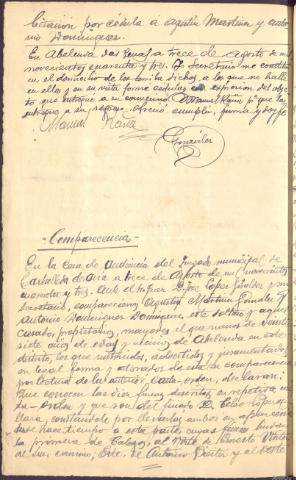 Citacion por cédula a Agustin Martinez y Antonio Dominguez.
En Abelenda das Penas a trece de Agosto de mil
novecientos cuarenta y tres. Yo Secretario me constituí
en el domicilio de los arriba dichos, a los que no hallé
en ello y en su vista formé cédulas con expresion del objeto
que entregué a su convecino Manuel Raña pª que las
entregue a su regreso. Ofreció cumplir, firma y doy fé.
Manuel Raña
Gonzalez
-Comparecencia-
En la Casa de Audiencia del Juzgado municipal de
Carballeda de Avia a trece de Agosto de mil novecientos
cuarenta y tres. Ante el Sr Juez D. José Lopez y mi
Secretario, comparecieron Agustin Martinez Gonzalez y
Antonio Dominguez Dominguez, este soltero y aquel
casado, propietarios, mayores el que menos de veinte
siete años de edad y vecinos de Abelenda en este
distrito, los que instruidos, advertidos y juramentados
en legal forma y enterados de esta su comparecencia
por lectura de la anterior carta-orden, declaran:
Que conocen las dos fincas descritas en
y que son del finado D.
constandole por llevarlas ambos en aparceria
desde hace tiempo a esta parte cuyas fincas lindan
la primera de al Norte de Ernesto
Este, de Antonio y al Oeste